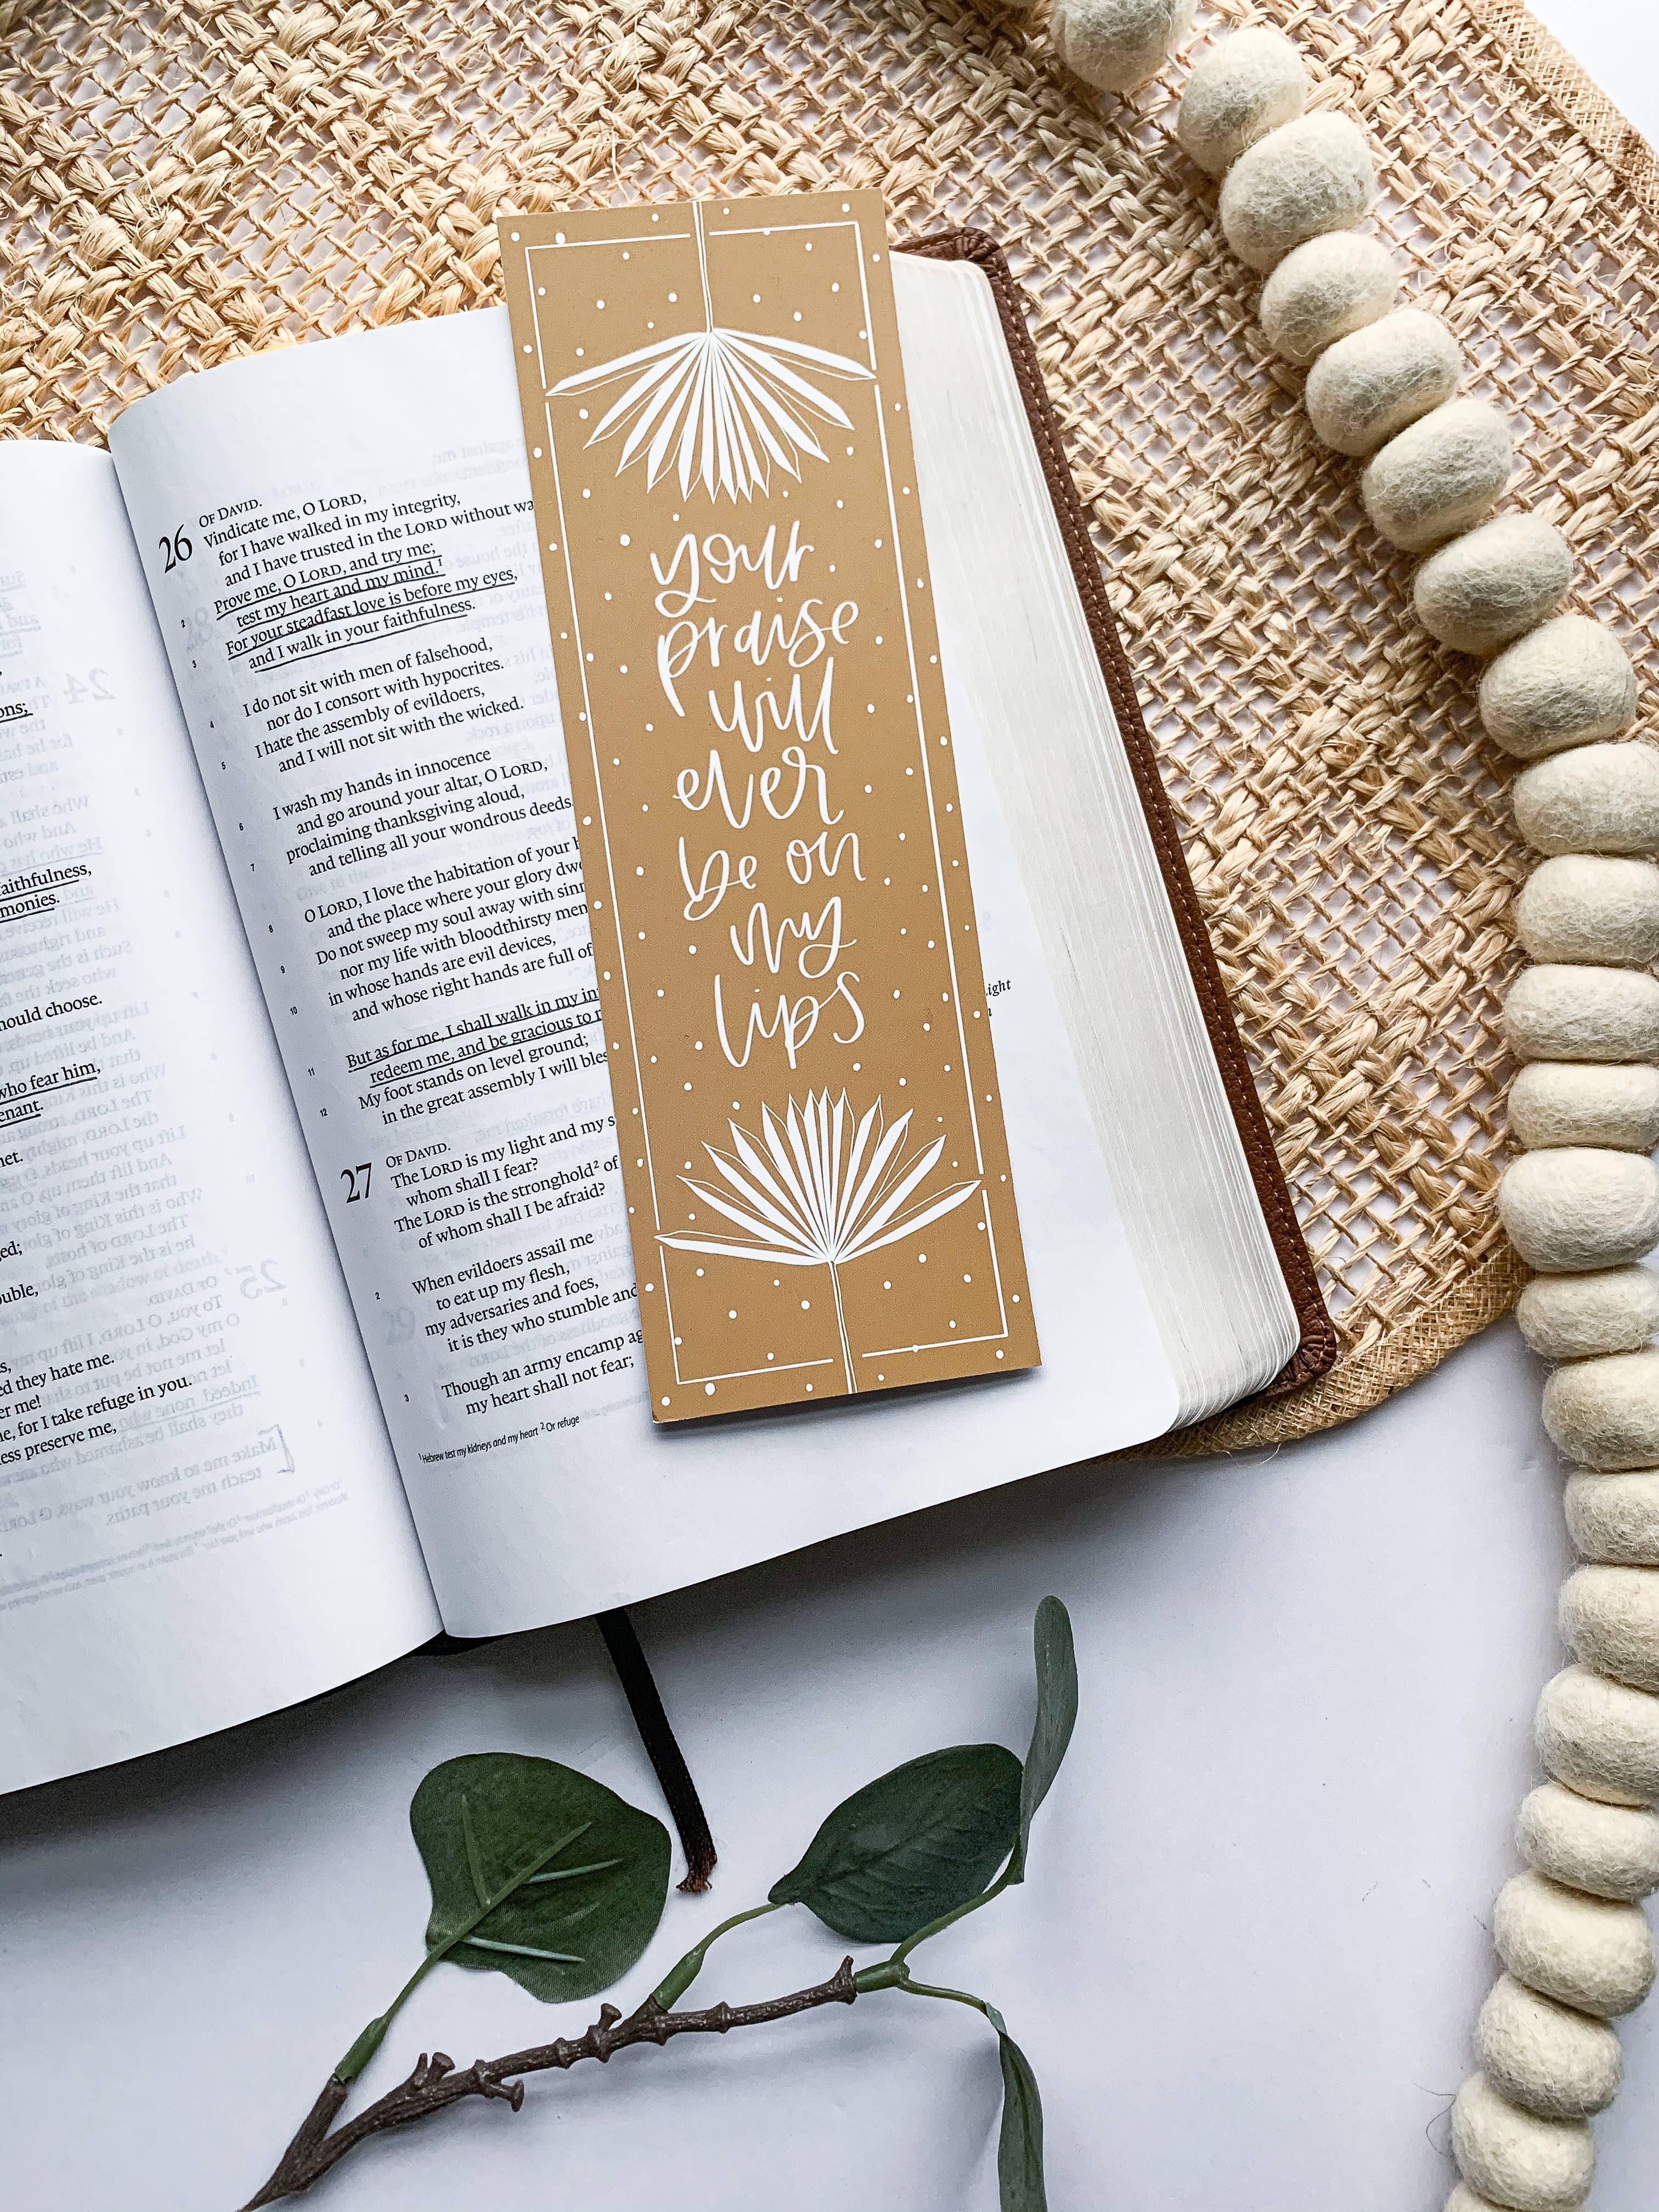 ons;
aithfulness,
monies.
hould choose.
who fear him,
enant.
net.
ed;
ouble,
s,
ed they hate me.
er me!
ne, for I take refuge in you.
ess preserve me,
26
OF DAVID.
Vindicate me, O LORD,
for I have walked in my integrity,
and I have trusted in the LORD without wa
2 Prove me, O LORD, and try me;
test my heart and my mind.¹
3 For your steadfast love is before my eyes,
and I walk in your faithfulness.
4 I do not sit with men of falsehood,
nor do I consort with hypocrites.
5 I hate the assembly of evildoers,
and I will not sit with the wicked.
6 I wash my hands in innocence
and go around your altar, O LORD,
7 proclaiming thanksgiving aloud,
and telling all your wondrous deeds.
8 O LORD, I love the habitation of your h
and the place where your glory dwe
9 Do not sweep my soul away with sinn
nor my life with bloodthirsty men
10 in whose hands are evil devices,
and whose right hands are full of
11 But as for me, I shall walk in my in
redeem me, and be gracious to m
12 My foot stands on level ground;
in the great assembly I will bles
27
OF DAVID.
The LORD is my light and my s
whom shall I fear?
The LORD is the stronghold² of
of whom shall I be afraid?
2 When evildoers assail me
to eat up my flesh,
my adversaries and foes,
it is they who stumble and
3 Though an army encamp ag
my heart shall not fear;
¹ Hebrew test my kidneys and my heart ² Or refuge
your
praise
will
ever
be on
my
lips
light